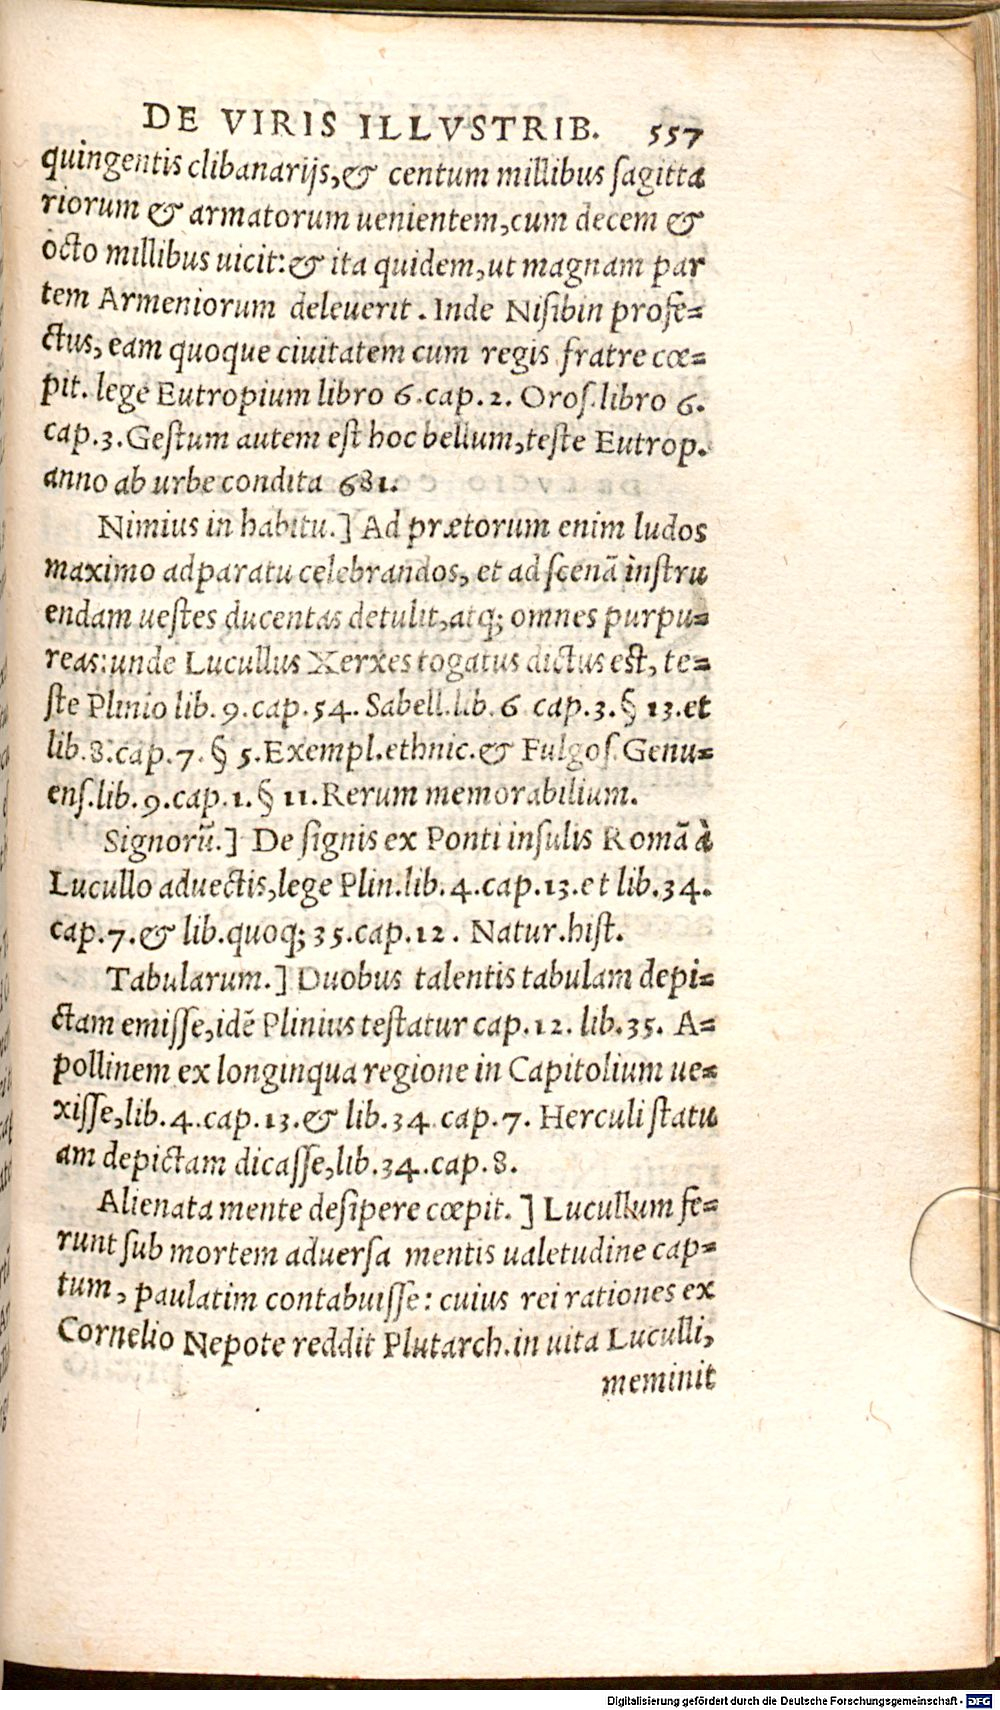 DE VIRIS ILLVSTRIB. 557
quingentis clibanarijs,& centum millibus ſagitta
riorum & armatorum uenientem,cum decem &
octo millibus uicit:& ita quidem,ut magnam par
tem Armeniorum deleuerit. Inde Niſibin profe=
ctus, eam quoque ciuitatem cum regis fratre cœ=
pit. lege Eutropium libro 6.cap.2. Oroſ.libro 6.
cap.3.Geſtum autem eſt hoc bellum,teſte Eutrop.
anno ab urbe condita 681.
Nimius in habitu.] Ad prætorum enim ludos
maximo adparatu celebrandos, et ad ſcenã inſtru
endam ueſtes ducentas detulit,atq; omnes purpu=
reas:unde Lucullus Xerxes togatus dictus eſt, te=
ſte Plinio lib. 9.cap.54. Sabell.lib. 6 cap.3.§ 13.et
lib.8.cap.7.§ 5.Exempl.ethnic.& Fulgoſ.Genu=
enſ.lib.9.cap.1.§ 11.Rerum memorabilium.
Signorũ.] De ſignis ex Ponti inſulis Romã à
Lucullo aduectis,lege Plin.lib.4.cap.13.et lib.34.
cap.7.& lib.quoq; 35.cap.12. Natur.hiſt.
Tabularum.] Duobus talentis tabulam depi=
ctam emiſſe,idẽ Plinius teſtatur cap.12. lib.35. A=
pollinem ex longinqua regione in Capitolium ue=
xiſſe,lib.4.cap.13.& lib.34 cap.7. Herculi ſtatu
am depictam dicaſſe,lib.34.cap.8.
Alienata mente deſipere cœpit.] Lucullum fe=
runt ſub mortem aduerſa mentis ualetudine cap=
tum, paulatim contabuiſſe: cuius rei rationes ex
Cornelio Nepote reddit Plutarch.in uita Luculli,
meminit
Digitalisierung gefördert durch die Deutsche Forschungsgemeinschaft - DFG